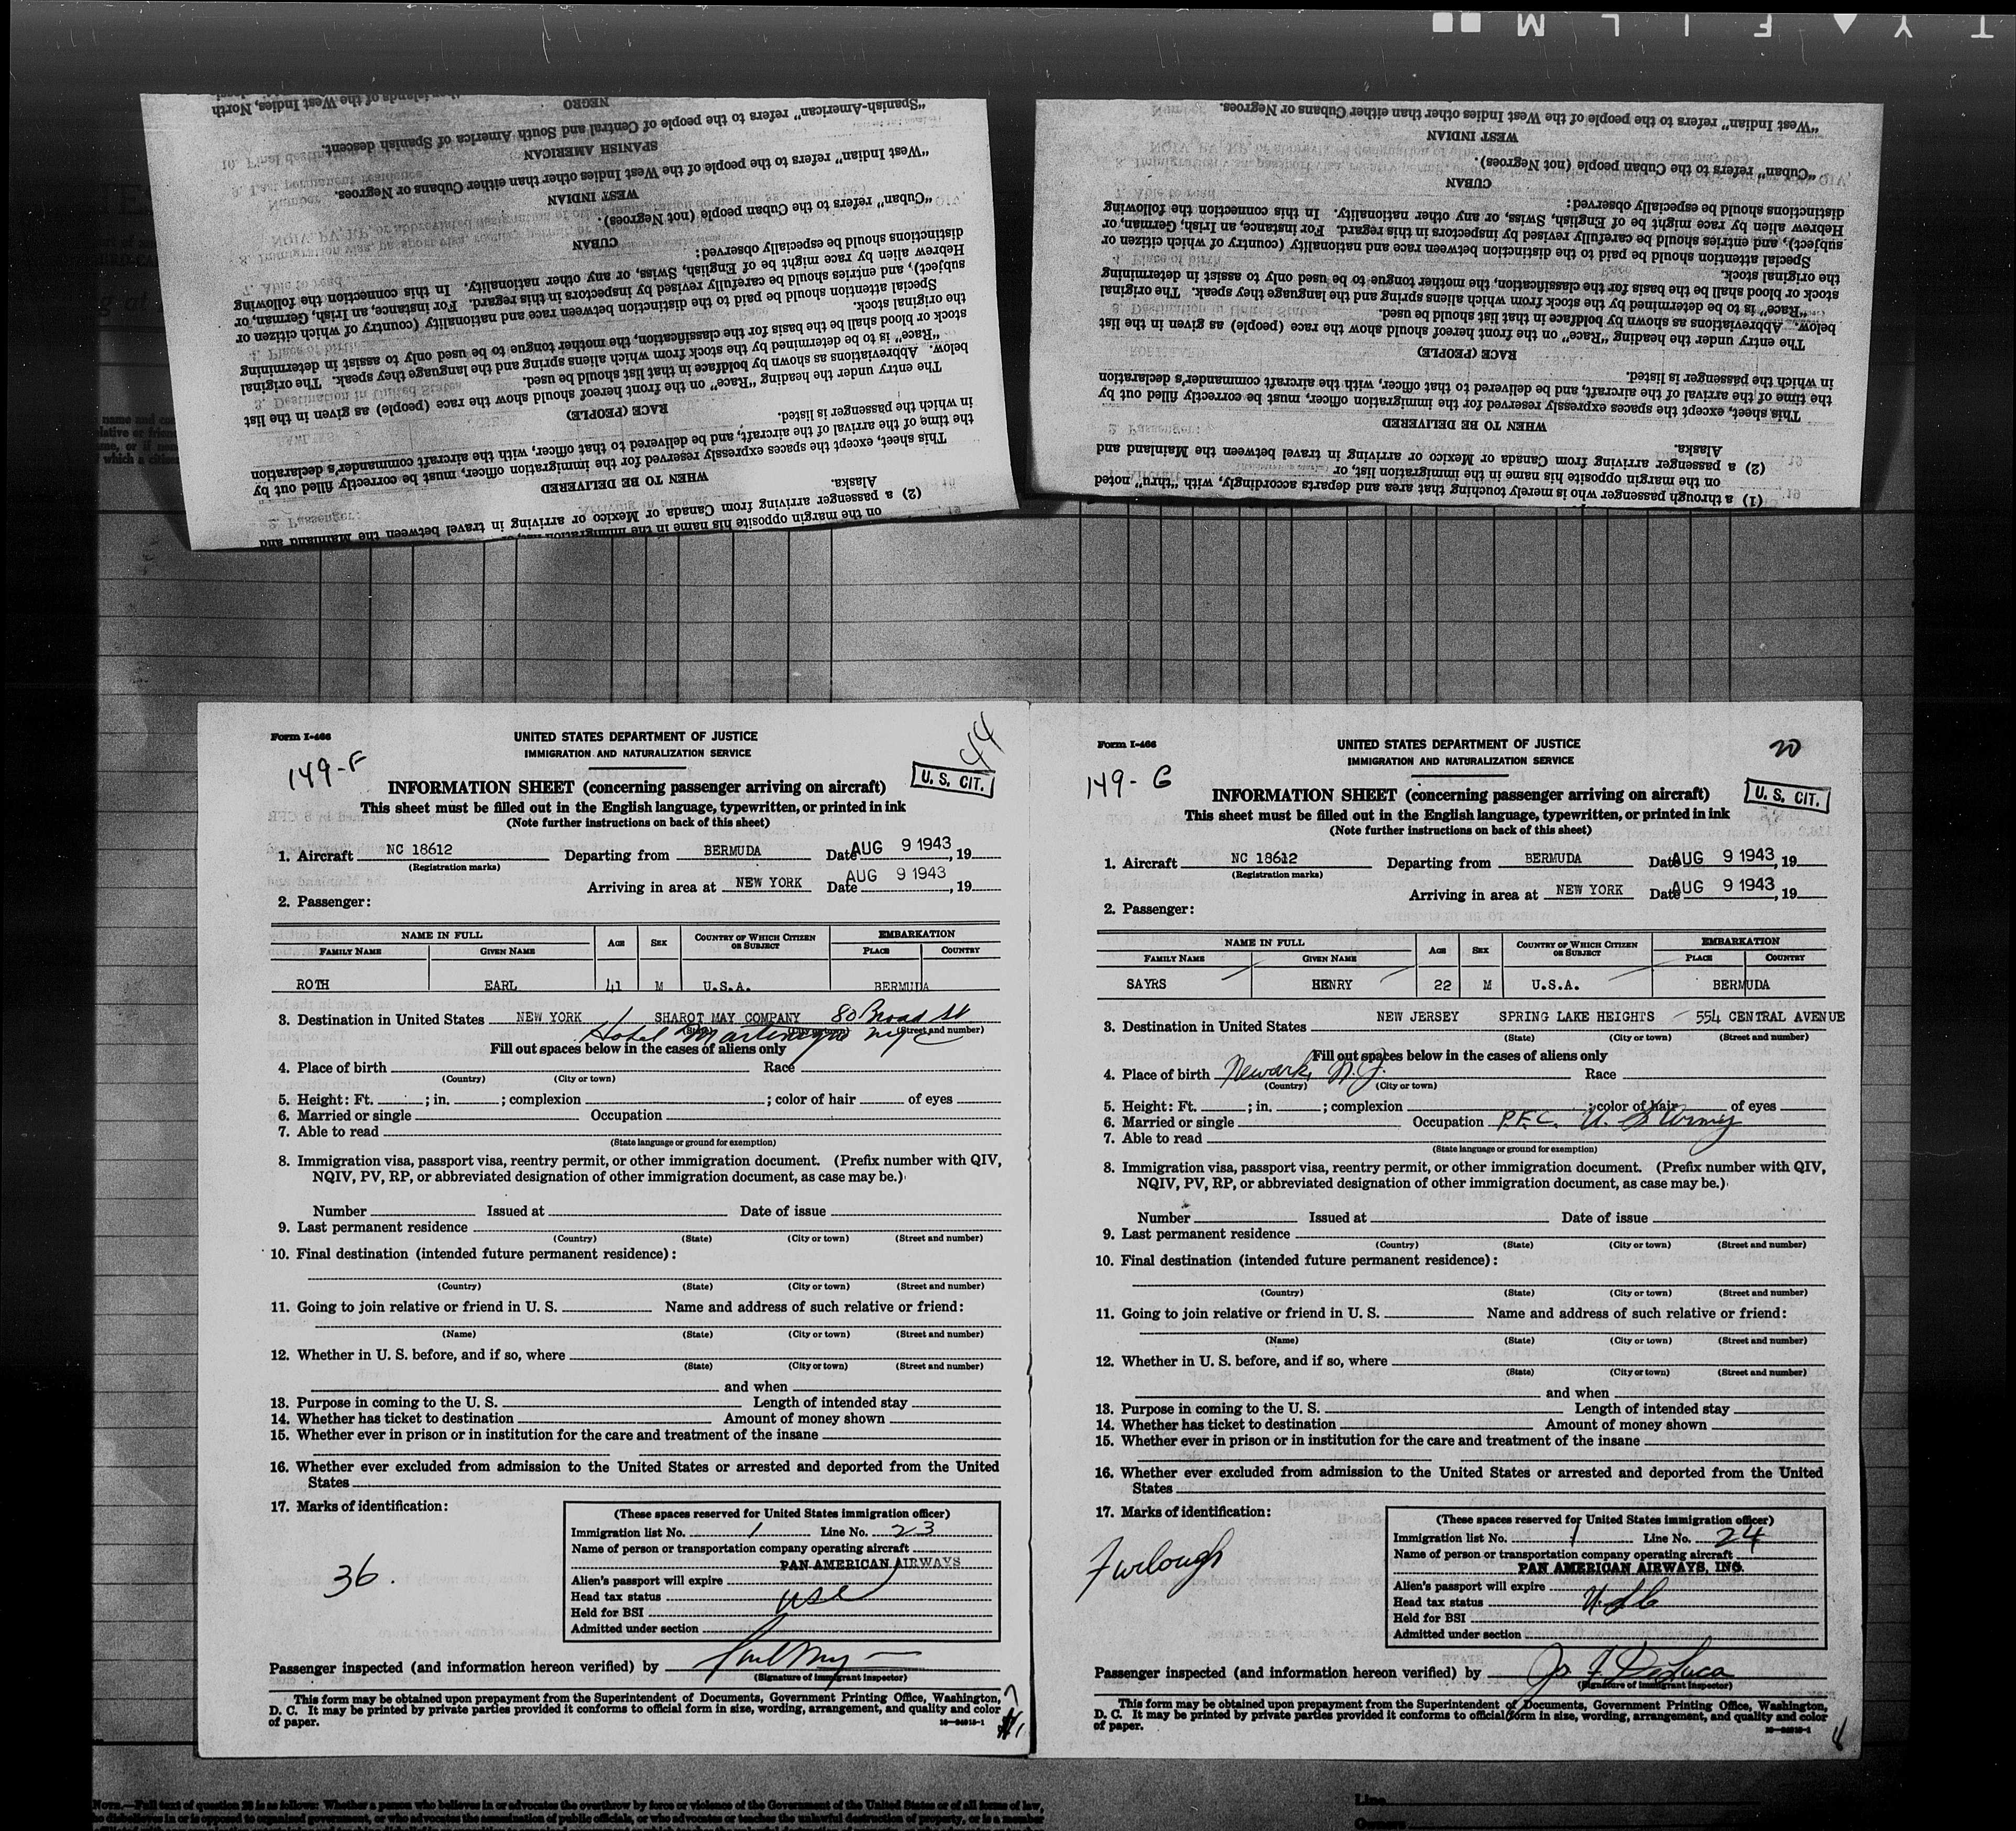 TYFILM
"Spanish-American" refers to the people of Central and South America of Spanish descent.
SPANISH AMERICAN
"West Indian" refers to the people of the West Indies other than either Cubans or Negroes.
WEST INDIAN
"Cuban" refers to the people (not Negroes).
CUBAN
distinctions should be especially observed:
Hebrew alien by race might be of English, Swiss, or any other nationality. In this connection the following
subject), and entries should be carefully revised by inspectors in this regard. For instance, an Irish, German, or
Special attention should be paid to the distinction between race and nationality (country of which citizen or
the original stock.
stock or blood shall be the basis for the classification, the mother tongue to be used only to assist in determining
"Race" is to be determined by the stock from which aliens spring and the language they speak. The original
below. Abbreviations as shown by boldface in that list should be used.
The entry under the heading "Race" on the front hereof should show the race (people) as given in the list
RACE (PEOPLE)
in which the passenger is listed.
the time of the arrival of the aircraft, and be delivered to that officer, with the aircraft commander's declaration
This sheet, except the spaces expressly reserved for the immigration officer, must be correctly filled out by
WHEN TO BE DELIVERED
Alaska.
(2) a passenger arriving from Canada or Mexico or arriving in travel between the Mainland and
on the margin opposite his name in the immigration list, or
"West Indian" refers to the people of the West Indies other than either Cubans or Negroes.
WEST INDIAN
"Cuban" refers to the Cuban people (not Negroes).
CUBAN
distinctions should be especially observed:
Hebrew alien by race might be of English, Swiss, or any other nationality. In this connection the following
subject), and entries should be carefully revised by inspectors in this regard. For instance, an Irish, German, or
Special attention should be paid to the distinction between race and nationality (country of which citizen or
the original stock.
stock or blood shall be the basis for the classification, the mother tongue to be used only to assist in determining
"Race" is to be determined by the stock from which aliens spring and the language they speak. The original
below. Abbreviations as shown by boldface in that list should be used.
The entry under the heading "Race" on the front hereof should show the race (people) as given in the list
RACE (PEOPLE)
in which the passenger is listed.
the time of the arrival of the aircraft, and be delivered to that officer, with the aircraft commander's declaration
This sheet, except the spaces expressly reserved for the immigration officer, must be correctly filled out by
WHEN TO BE DELIVERED
Alaska.
(2) a passenger arriving from Canada or Mexico or arriving in travel between the Mainland and
on the margin opposite his name in the immigration list, or
(1) a through passenger who is merely touching that area and departs accordingly, with "thru" noted
Form I-466
UNITED STATES DEPARTMENT OF JUSTICE
IMMIGRATION AND NATURALIZATION SERVICE
44
149-F
U. S. CIT.
INFORMATION SHEET (concerning passenger arriving on aircraft)
This sheet must be filled out in the English language, typewritten, or printed in ink
(Note further instructions on back of this sheet)
1. Aircraft NC 18612 Departing from BERMUDA Date AUG 9 1943, 19
(Registration marks)
Arriving in area at NEW YORK Date AUG 9 1943, 19
2. Passenger:
NAME IN FULL AGE SEX COUNTRY OF WHICH CITIZEN OR SUBJECT EMBARKATION
FAMILY NAME GIVEN NAME PLACE COUNTRY
ROTH EARL 41 M U.S.A. BERMUDA
3. Destination in United States NEW YORK SHAROT MAY COMPANY 80 Broad St
(State) (City or town) (Street and number)
Hotel Martinique NYC
Fill out spaces below in the cases of aliens only
4. Place of birth Race
(Country) (City or town)
5. Height: Ft. ; in. ; complexion ; color of hair of eyes
6. Married or single Occupation
7. Able to read
(State language or ground for exemption)
8. Immigration visa, passport visa, reentry permit, or other immigration document. (Prefix number with QIV,
NQIV, PV, RP, or abbreviated designation of other immigration document, as case may be.)
Number Issued at Date of issue
9. Last permanent residence
(Country) (State) (City or town) (Street and number)
10. Final destination (intended future permanent residence):
(Country) (State) (City or town) (Street and number)
11. Going to join relative or friend in U. S. Name and address of such relative or friend:
(Name) (State) (City or town) (Street and number)
12. Whether in U. S. before, and if so, where
(State) (City or town) (Street and number)
and when
13. Purpose in coming to the U. S. Length of intended stay
14. Whether has ticket to destination Amount of money shown
15. Whether ever in prison or in institution for the care and treatment of the insane
16. Whether ever excluded from admission to the United States or arrested and deported from the United
States
17. Marks of identification:
36.
(These spaces reserved for United States immigration officer)
Immigration list No. 1 Line No. 23
Name of person or transportation company operating aircraft
PAN AMERICAN AIRWAYS
Alien's passport will expire
Head tax status USC
Held for BSI
Admitted under section
Passenger inspected (and information hereon verified) by
(Signature of immigrant inspector)
This form may be obtained upon prepayment from the Superintendent of Documents, Government Printing Office, Washington,
D. C. It may be printed by private parties provided it conforms to official form in size, wording, arrangement, and quality and color
of paper.
Form I-466
UNITED STATES DEPARTMENT OF JUSTICE
IMMIGRATION AND NATURALIZATION SERVICE
20
149-G
U. S. CIT.
INFORMATION SHEET (concerning passenger arriving on aircraft)
This sheet must be filled out in the English language, typewritten, or printed in ink
(Note further instructions on back of this sheet)
1. Aircraft NC 18612 Departing from BERMUDA Date AUG 9 1943, 19
(Registration marks)
Arriving in area at NEW YORK Date AUG 9 1943, 19
2. Passenger:
NAME IN FULL AGE SEX COUNTRY OF WHICH CITIZEN OR SUBJECT EMBARKATION
FAMILY NAME GIVEN NAME PLACE COUNTRY
SAYRS HENRY 22 M U.S.A. BERMUDA
3. Destination in United States NEW JERSEY SPRING LAKE HEIGHTS 554 CENTRAL AVENUE
(State) (City or town) (Street and number)
Fill out spaces below in the cases of aliens only
4. Place of birth Newark, N.J. Race
(Country) (City or town)
5. Height: Ft. ; in. ; complexion ; color of hair of eyes
6. Married or single Occupation P.F.C. U. S Army
7. Able to read
(State language or ground for exemption)
8. Immigration visa, passport visa, reentry permit, or other immigration document. (Prefix number with QIV,
NQIV, PV, RP, or abbreviated designation of other immigration document, as case may be.)
Number Issued at Date of issue
9. Last permanent residence
(Country) (State) (City or town) (Street and number)
10. Final destination (intended future permanent residence):
(Country) (State) (City or town) (Street and number)
11. Going to join relative or friend in U. S. Name and address of such relative or friend:
(Name) (State) (City or town) (Street and number)
12. Whether in U. S. before, and if so, where
(State) (City or town) (Street and number)
and when
13. Purpose in coming to the U. S. Length of intended stay
14. Whether has ticket to destination Amount of money shown
15. Whether ever in prison or in institution for the care and treatment of the insane
16. Whether ever excluded from admission to the United States or arrested and deported from the United
States
17. Marks of identification:
Furlough
(These spaces reserved for United States immigration officer)
Immigration list No. 1 Line No. 24
Name of person or transportation company operating aircraft
PAN AMERICAN AIRWAYS, INC.
Alien's passport will expire
Head tax status USC
Held for BSI
Admitted under section
Passenger inspected (and information hereon verified) by Jos F DeLuca
(Signature of immigrant inspector)
This form may be obtained upon prepayment from the Superintendent of Documents, Government Printing Office, Washington,
D. C. It may be printed by private parties provided it conforms to official form in size, wording, arrangement, and quality and color
of paper.
NOTE.—Full text of question 20 is as follows: Whether a person who believes in or advocates the overthrow by force or violence of the Government of the United States or of all forms of law,
Line
Owners